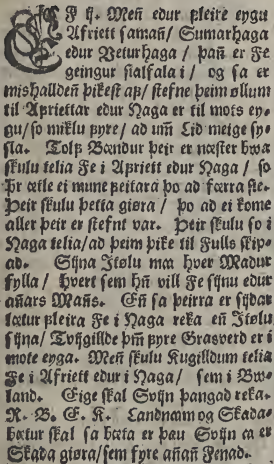 EF ij. Menn edur fleire eygu
Afriett saman/ Sumarhaga
edur Veturhaga/ þañ er Fe
geingur sialfala i/ og sa er
mishallden þikest af/ stefne þeim øllum
til Afriettar edur Haga er til mots ey-
gu/ so miklu fyre/ ad uñ Tid meige sy-
sla. Tolf Bændur þeir er næster bwa
skulu telia Fe i Afriett edur Haga / so
þr ætle ei mune feitara þo ad færra sie.
Þeir skulu þetta giøra / þo ad ei kome
aller þeir er stefnt var. Þeir skulu so i
Haga telia/ ad þeim þike til Fulls skip-
ad. Sijna Jtølu ma hver Madur
fylla / hvert sem hñ vill Fe sijnu edur
añars Mañs. Eñ sa þeirra er sijdar
lætur fleira Fe i Haga reka eñ Jtølu
sijna/ Tvijgillde þm fyre Grasverd er i
mote eyga. Meñ skulu Kugilldum telia
Fe i Afriett edur i Haga / sem i Bw-
land. Eige skal Svijn þangad reka.
R. B. E. K. Landnam og Skada-
bætur skal sa bæta er þau Svijn ca er
Skada giøra/ sem fyre añañ Fenad.